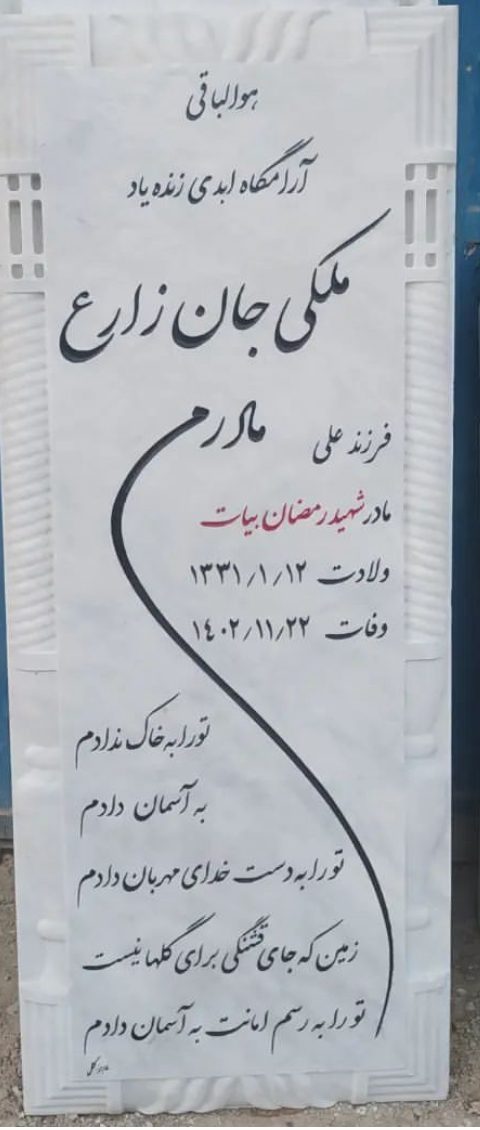 هوالباقی
آرامگاه ابدی زنده یاد
ملکی جان زارع
مادرم
فرزند علی
مادر شهید رمضان بیات
ولادت ۱۳۳۱/۱/۱۲
وفات ۱٤۰۲/۱۱/۲۲
تو را به خاک ندادم
به آسمان دادم
تو را به دست خدای مهربان دادم
زمین که جای قشنگی برای گلها نیست
تو را به رسم امانت به آسمان دادم